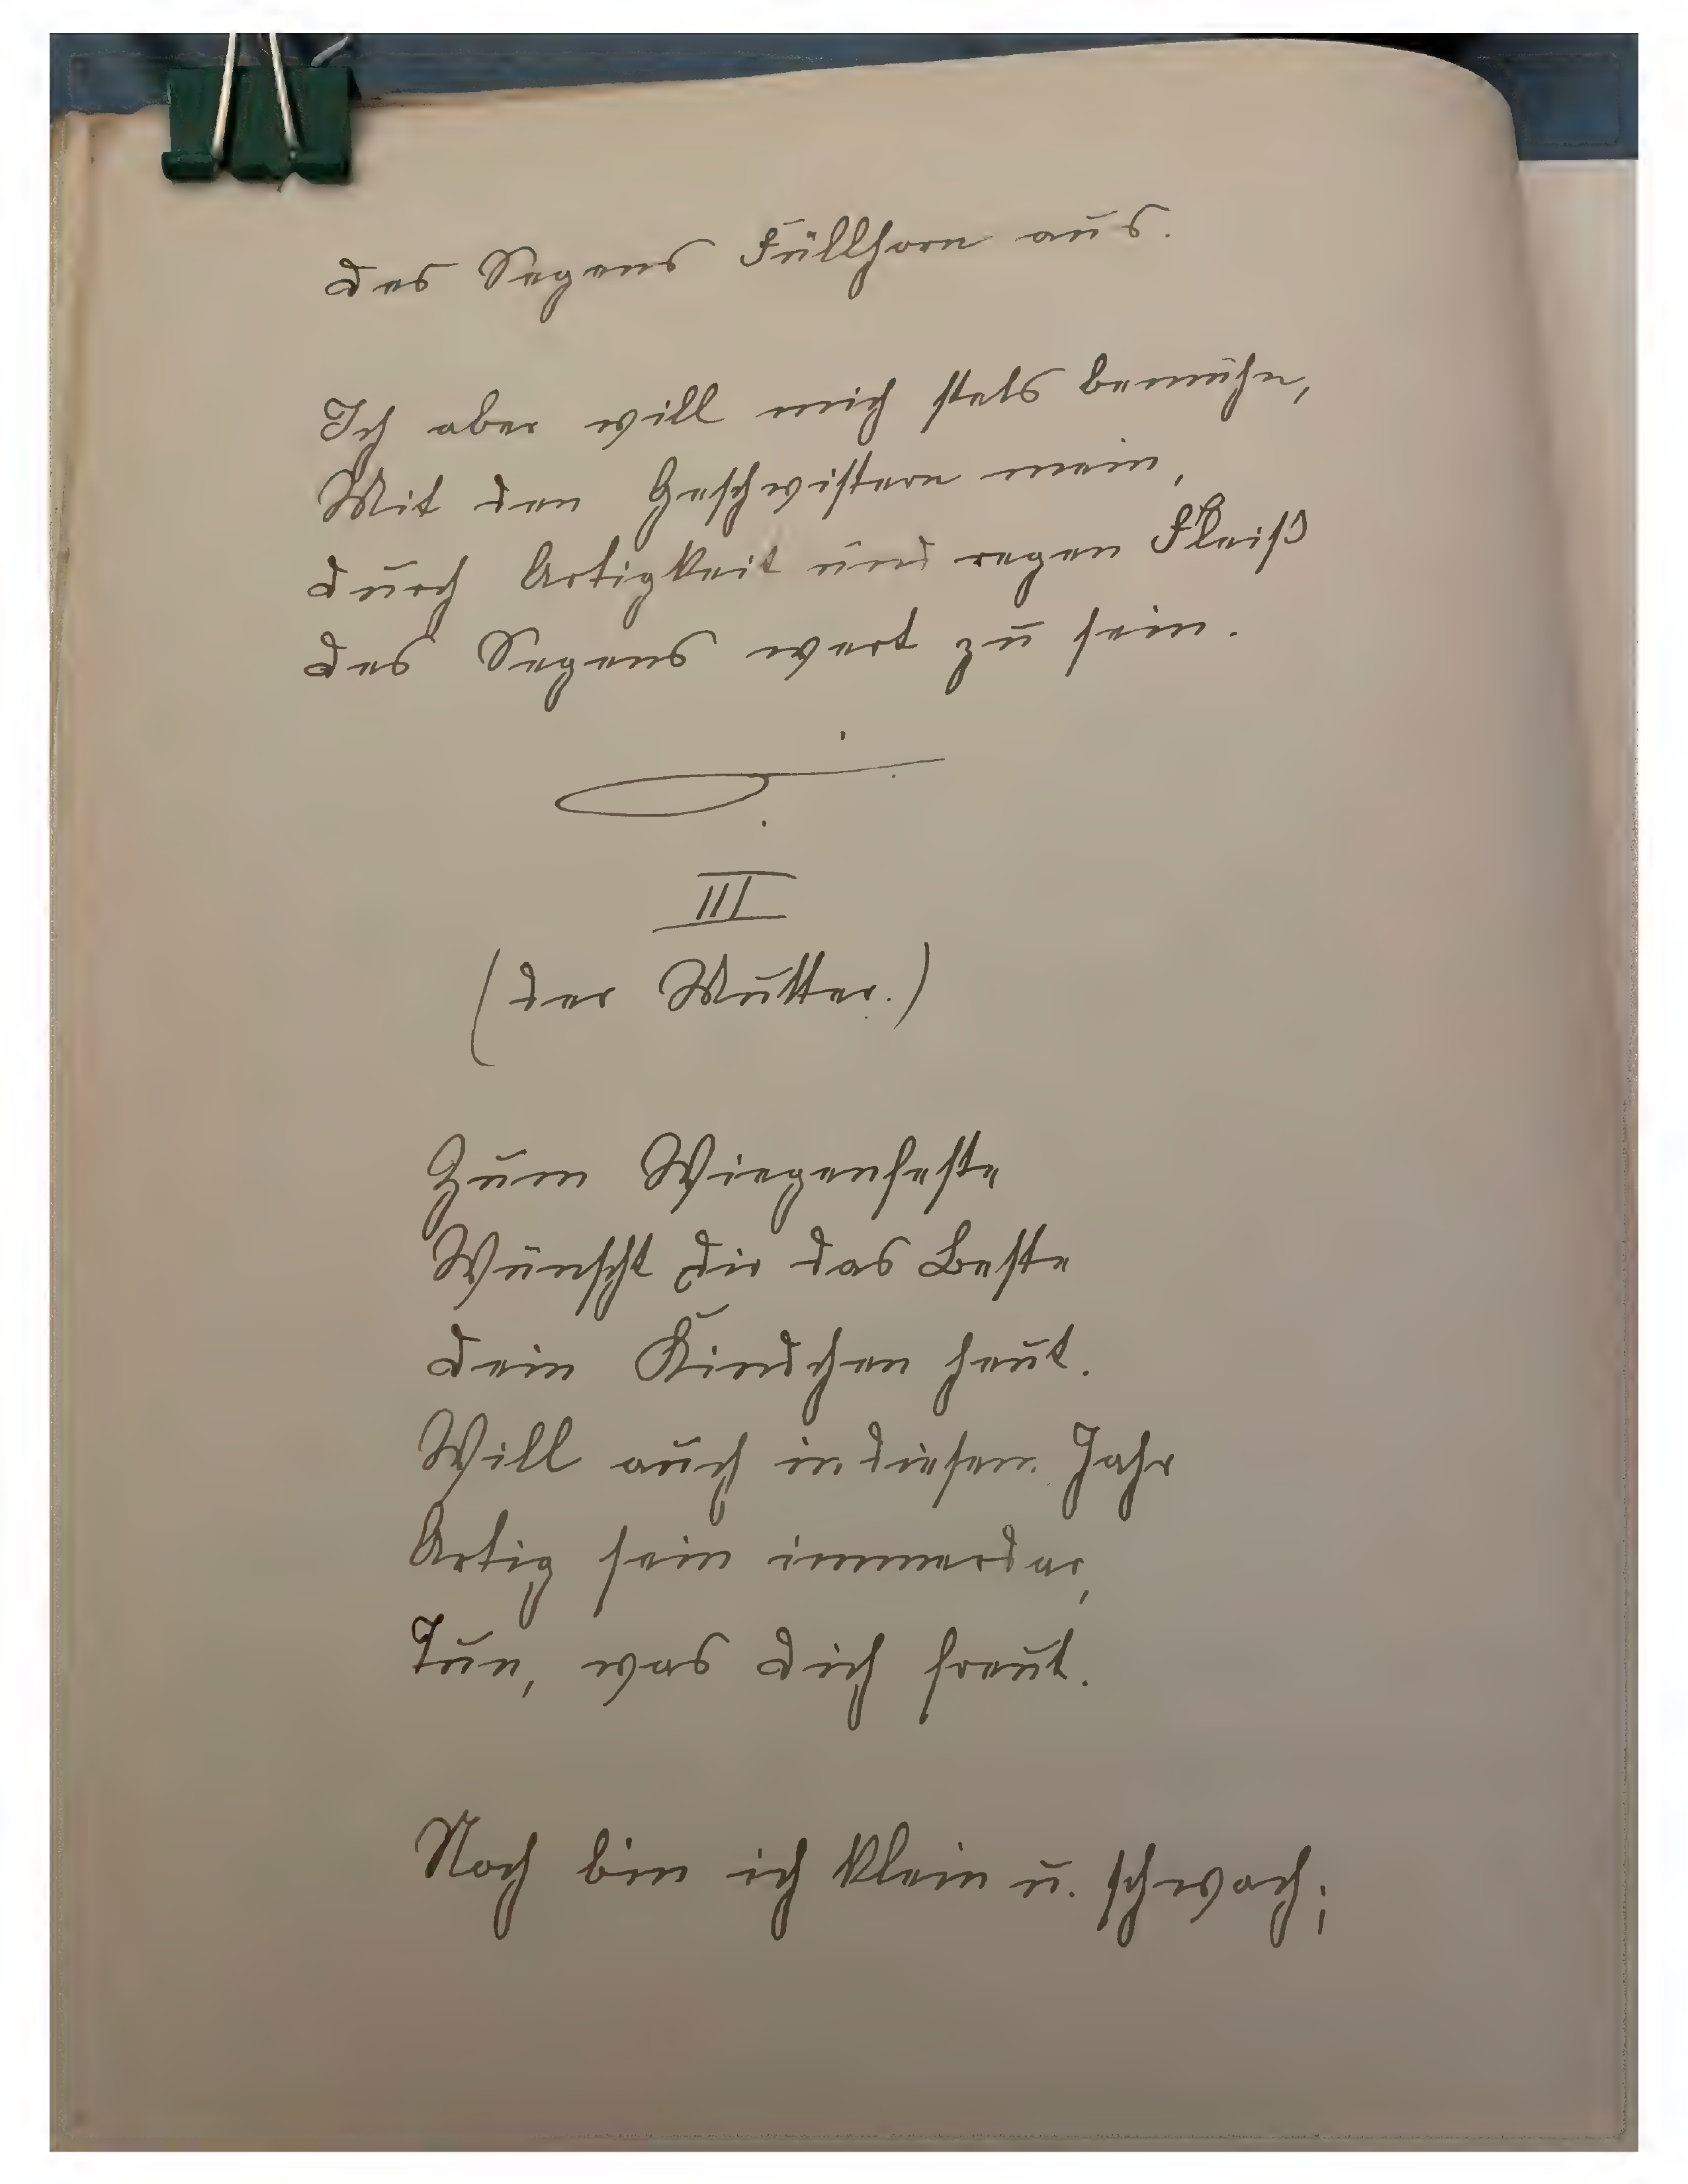 des Segens Füllhorn aus.
Ich aber will mich stets bemühn,
Mit den Geschwistern mein,
durch Artigkeit und regen Fleiß
des Segens wert zu sein.
III
(der Mutter.)
Zum Wiegenfeste
Wünscht dir das Beste
dein Kindchen heut.
Will auch in diesem Jahr
Artig sein immerdar,
Tun, was dich freut.
Noch bin ich klein u. schwach;